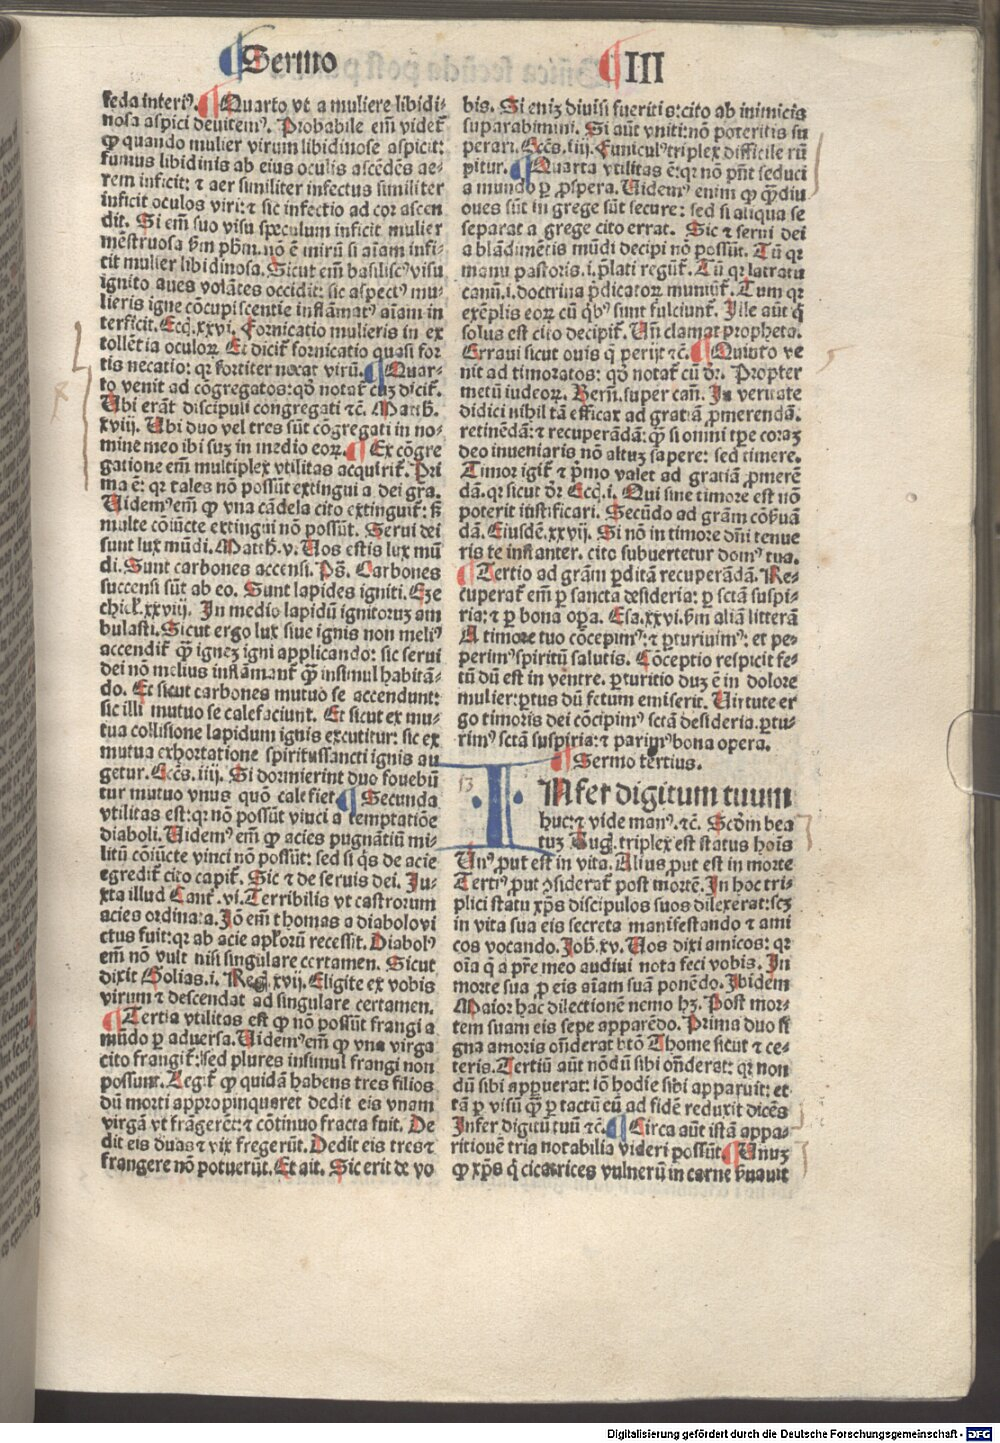 Sermo III
feda interiꝰ. ¶ Quarto vt a muliere libidi-
nosa aspici deuitemꝰ. Probabile em̄ videt̄
ꝙ quando mulier virum libidinose aspicit:
fumus libidinis ab eius oculis ascēdēs ae-
rem inficit: ⁊ aer similiter infectus similiter
inficit oculos viri: ⁊ sic infectio ad cor ascen
dit. Si em̄ suo visu speculum inficit mulier
mēstruosa ẜm pħm. nō ē mirū si aīam infi-
cit mulier libidinosa. Sicut em̄ basiliscꝰ visu
ignito aues volātes occidit: sic aspectꝰ mu-
lieris igne cōcupiscentie inflāmatꝰ aīam in
terficit. Eccī. xxvi. Fornicatio mulieris in ex
tollētia oculoꝝ Et dicit̄ fornicatio quasi for
tis necatio: qꝛ fortiter necat virū. ¶ Quar-
to venit ad cōgregatos: qd̄ notat̄ cuꝫ dicit̄.
Ubi erāt discipuli congregati ⁊c̄. Matth.
xviij. Ubi duo vel tres sūt cōgregati in no-
mine meo ibi suꝫ in medio eoꝝ. ¶ Ex cōgre
gatione em̄ multiplex vtilitas acquirit̄. Pri
ma ē: qꝛ tales nō possūt extingui a dei gr̄a.
Uidemꝰ em̄ ꝙ vna cādela cito extinguit̄: sꝫ
multe cōiūcte extingui nō possūt. Serui dei
sunt lux mūdi. Matth. v. Uos estis lux mū
di. Sunt carbones accensi. Pō. Carbones
succensi sūt ab eo. Sunt lapides igniti. Eze
chieł. xxviij. In medio lapidū ignitorum am
bulasti. Sicut ergo lux siue ignis non meliꝰ
accendit̄ ꝙ̄ igneꝫ igni applicando: sic serui
dei nō melius inflāmant̄ ꝙ̄ insimul habitā-
do. Et sicut carbones mutuo se accendunt:
sic illi mutuo se calefaciunt. Et sicut ex mu-
tua collisione lapidum ignis excutitur: sic ex
mutua exhortatione spiritussancti ignis au
getur. Eccs. iiij. Si dormierint duo fouebū
tur mutuo vnus quō calefiet. ¶ Secunda
vtilitas est: qꝛ nō possūt vinci a temptatiōe
diaboli. Uidemꝰ em̄ ꝙ acies pugnātiū mi-
litū cōiūcte vinci nō possūt: sed si q̇s de acie
egredit̄ cito capit̄. Sic ⁊ de seruis dei. Ju-
xta illud Cant̄. vi. Terribilis vt castrorum
acies ordinata. Jō em̄ thomas a diabolo vi
ctus fuit: qꝛ ab acie apłorū recessit. Diabolꝰ
em̄ nō vult nisi singulare certamen. Sicut
dixit Golias. i. Reg. xvij. Eligite ex vobis
virum ⁊ descendat ad singulare certamen.
¶ Tertia vtilitas est ꝙ nō possūt frangi a
mūdo ꝑ aduersa. Uidemꝰ em̄ ꝙ vna virga
cito frangit̄: sed plures insimul frangi non
possunt. Legit̄ ꝙ quidā habens tres filios
dū morti appropinquaret dedit eis vnam
virgā vt frāgerēt: ⁊ cōtinuo fracta fuit. De
dit eis duas ⁊ vix fregerūt. Dedit eis tres ⁊
frangere nō potuerūt. Et ait. Sic erit de vo
bis. Si enim diuisi fueritis: cito ab inimicis
suparabimini. Si aūt vniti: nō poteritis su
perari. Eccs. iiij. Funiculꝰ triplex difficile rū
pitur. ¶ Quarta vtilitas ē: qꝛ nō pn̄t seduci
a mundo ꝑ ꝓspera. Uidemꝰ enim ꝙ ꝙ̄diu
oues sūt in grege sūt secure: sed si aliqua se
separat a grege cito errat. Sic ⁊ serui dei
a blādimētis mūdi decipi nō possūt. Tū qꝛ
manu pastoris. i. p̄lati regūt̄. Tū qꝛ latratu
canū. i. doctrina p̄dicatoꝝ muniūt̄. Tum qꝛ
exēplis eoꝝ cū q̇bꝰ sunt fulciunt̄. Ille aūt q̇
solus est cito decipit̄. Uñ clamat propheta.
Erraui sicut ouis q̄ perijt ⁊c̄. ¶ Quinto ve
nit ad timoratos: qd̄ notat̄ cū dr̄. Propter
metū iudeoꝝ. Bern̄. super can̄. In veritate
didici nihil tā efficax ad gratiā ꝓmerendā.
retinēdā: ⁊ recuperādā: ꝙ̄ si omni tpe coraꝫ
deo inueniaris nō altuꝫ sapere: sed timere.
Timor igit̄ ⁊ p̄mo valet ad gratiā ꝓmerē
dā. qꝛ sicut dr̄ Eccī. i. Qui sine timore est nō
poterit iustificari. Secūdo ad gr̄am cōẜuā
dā. Eiusdē. xxvij. Si nō in timore dn̄i tenue
ris te instanter. cito subuertetur domꝰ tua.
¶ Tertio ad gr̄am ꝑditā recuperādā. Re-
cuperat̄ em̄ ꝑ sancta desideria: ꝑ sctā suspi-
ria: ⁊ ꝑ bona oꝑa. Esa. xxvi. ẜm aliā litterā
A timore tuo cōcepimꝰ: ⁊ ꝑturiuimꝰ: et pe-
perimꝰ spiritū salutis. Cōceptio respicit fe-
tū dū est in ventre. ꝑturitio duꝫ ē in dolore
mulier: ꝑtus dū fetum emiserit. Uirtute er
go timoris dei cōcipimꝰ sctā desideria. ꝑtu-
rimꝰ sctā suspiria: ⁊ parimꝰ bona opera.
¶ Sermo tertius.
13 INfer digitum tuum
huc: ⁊ vide manꝰ. ⁊c̄. Scd̄m bea
tuꝫ Aug. triplex est status hoīs
Unꝰ ꝓut est in vita. Alius ꝓut est in morte
Tertiꝰ ꝓut ꝯsiderat̄ post mortē. In hoc tri-
plici statu xp̄s discipulos suos dilexerat: scꝫ
in vita sua eis secreta manifestando ⁊ ami
cos vocando. Joh. xv. Uos dixi amicos: qꝛ
oīa q̄ a pr̄e meo audiui nota feci vobis. In
morte sua ꝓ eis aīam suā ponēdo. Ibidem
Maior hāc dilectionē nemo hꝫ. Post mor-
tem suam eis sepe apparēdo. Prima duo si
gna amoris oñderat btō Thome sicut ⁊ ce-
teris. Tertiū aūt nōdū sibi oñderat: qꝛ non
dū sibi apꝑuerat: iō hodie sibi apparuit: et
tā ꝑ visū ꝙ̄ ꝑ tactū eū ad fidē reduxit dicēs
Infer digitū tuū ⁊c̄. ¶ Circa aūt istā appa-
ritionē tria notabilia videri possūt ¶ Unuꝫ
ꝙ xp̄s q̄ cicatrices vulnerū in carne ẜuauit
Digitalisierung gefördert durch die Deutsche Forschungsgemeinschaft - DFG